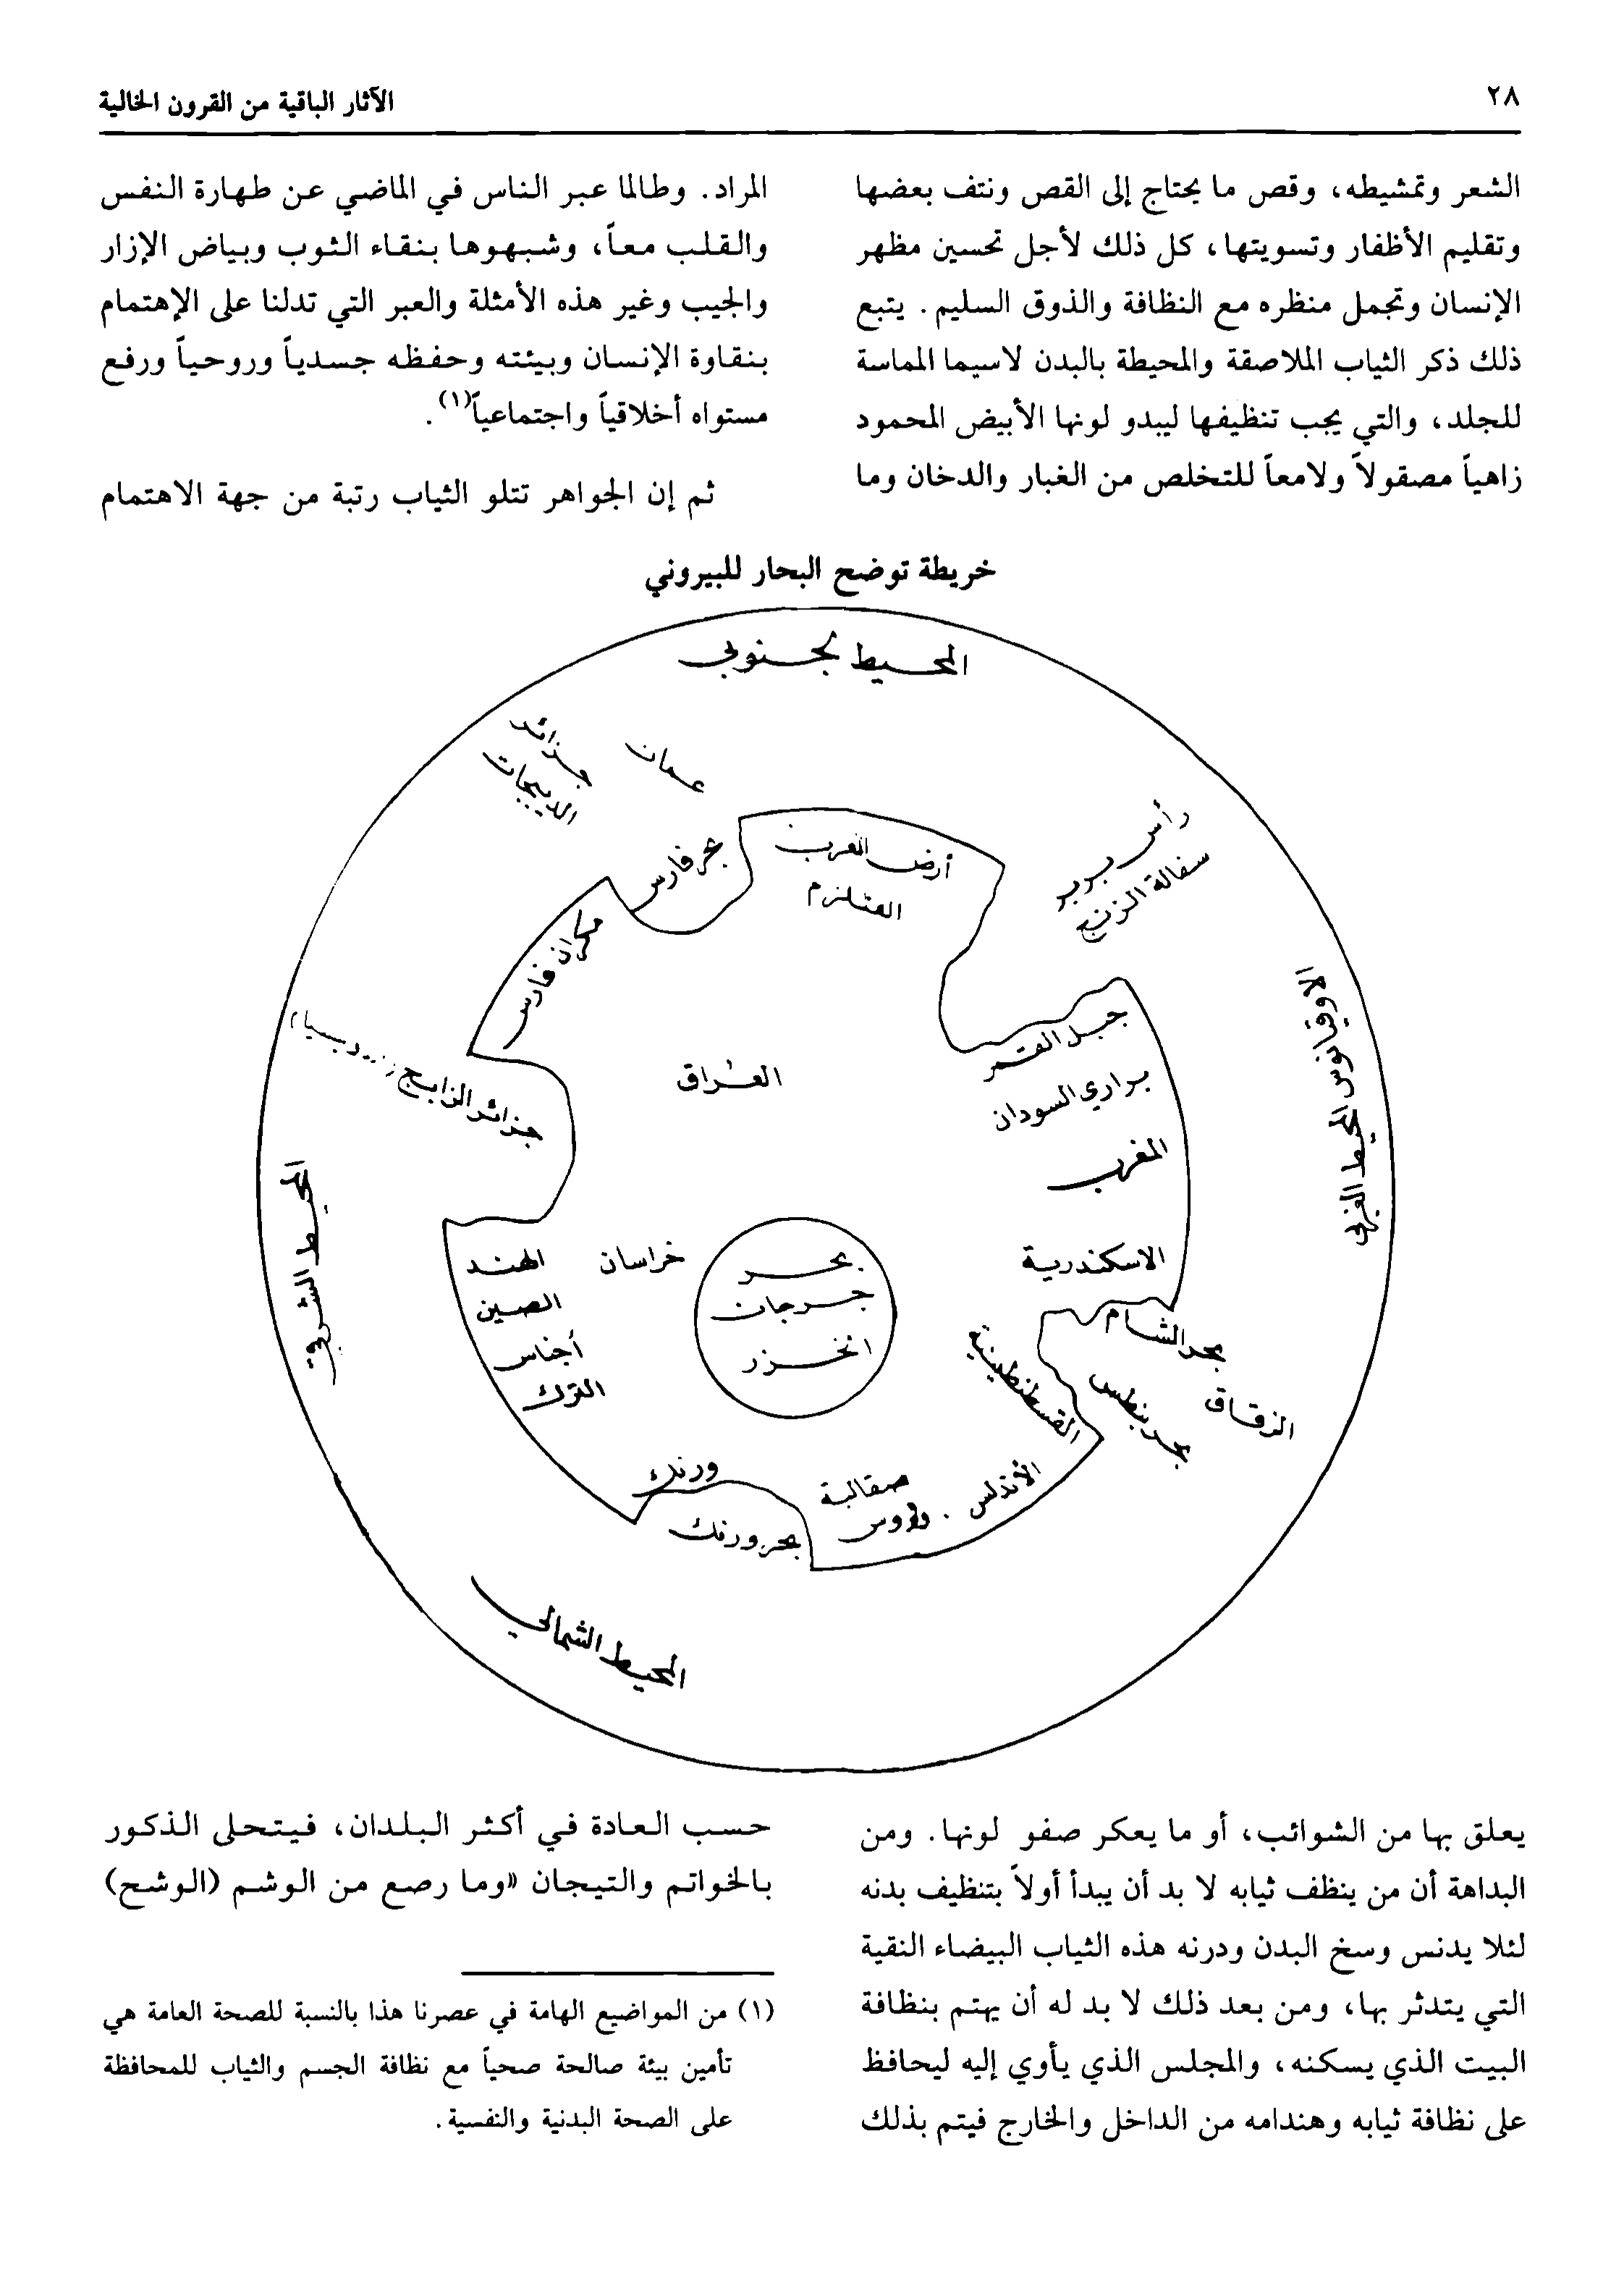 ٢٨
الآثار الباقية من القرون الخالية
الشعر وتمشيطه، وقص ما يحتاج إلى القص ونتف بعضها
وتقليم الأظفار وتسويتها، كل ذلك لأجل تحسين مظهر
الإنسان وتجمل منظره مع النظافة والذوق السليم. يتبع
ذلك ذكر الثياب الملاصقة والمحيطة بالبدن لاسيما المماسة
للجلد، والتي يجب تنظيفها ليبدو لونها الأبيض المحمود
زاهياً مصقولاً ولامعاً للتخلص من الغبار والدخان وما
المراد. وطالما عبر الناس في الماضي عن طهارة النفس
والقلب معاً، وشبهوها بنقاء الثوب وبياض الإزار
والجيب وغير هذه الأمثلة والعبر التي تدلنا على الإهتمام
بنقاوة الإنسان وبيئته وحفظه جسدياً وروحياً ورفع
مستواه أخلاقياً واجتماعياً(١).
ثم إن الجواهر تتلو الثياب رتبة من جهة الاهتمام
خريطة توضح البحار للبيروني
المحيط الجنوبي
جزائر
الديبجات
عمان
رأس بربر
سفالة الزنج
بحر فارس
أرض العرب
القلزم
مكران فارس
الاوقيانوس المحيط الغربي
جزائر الزابج
العراق
جبل القمر
براري السودان
المغرب
المحيط الشرقي
الهند
الصين
أجناس
الترك
خراسان
بحر
جرجان
الخزر
الاسكندرية
بحر الشام
القسطنطينية
بحر بنطس
الزقاق
ورنك
بحر ورنك
صقالبة
وروس
الأندلس
المحيط الشمالي
يعلق بها من الشوائب، أو ما يعكر صفو لونها. ومن
البداهة أن من ينظف ثيابه لا بد أن يبدأ أولاً بتنظيف بدنه
لئلا يدنس وسخ البدن ودرنه هذه الثياب البيضاء النقية
التي يتدثر بها، ومن بعد ذلك لا بد له أن يهتم بنظافة
البيت الذي يسكنه، والمجلس الذي يأوي إليه ليحافظ
على نظافة ثيابه وهندامه من الداخل والخارج فيتم بذلك
حسب العادة في أكثر البلدان، فيتحلى الذكور
بالخواتم والتيجان «وما رصع من الوشم (الوشح)
(١) من المواضيع الهامة في عصرنا هذا بالنسبة للصحة العامة هي
تأمين بيئة صالحة صحياً مع نظافة الجسم والثياب للمحافظة
على الصحة البدنية والنفسية.